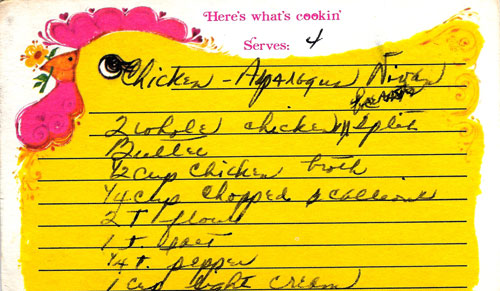 Here's what's cookin'
Serves: 4
Chicken - Asparagus Divan
breasts
2 whole chicken split
Butter
1/2 cup chicken broth
1/4 cup chopped scallions
2 T flour
1 t. salt
1/4 t. pepper
1 cup light cream